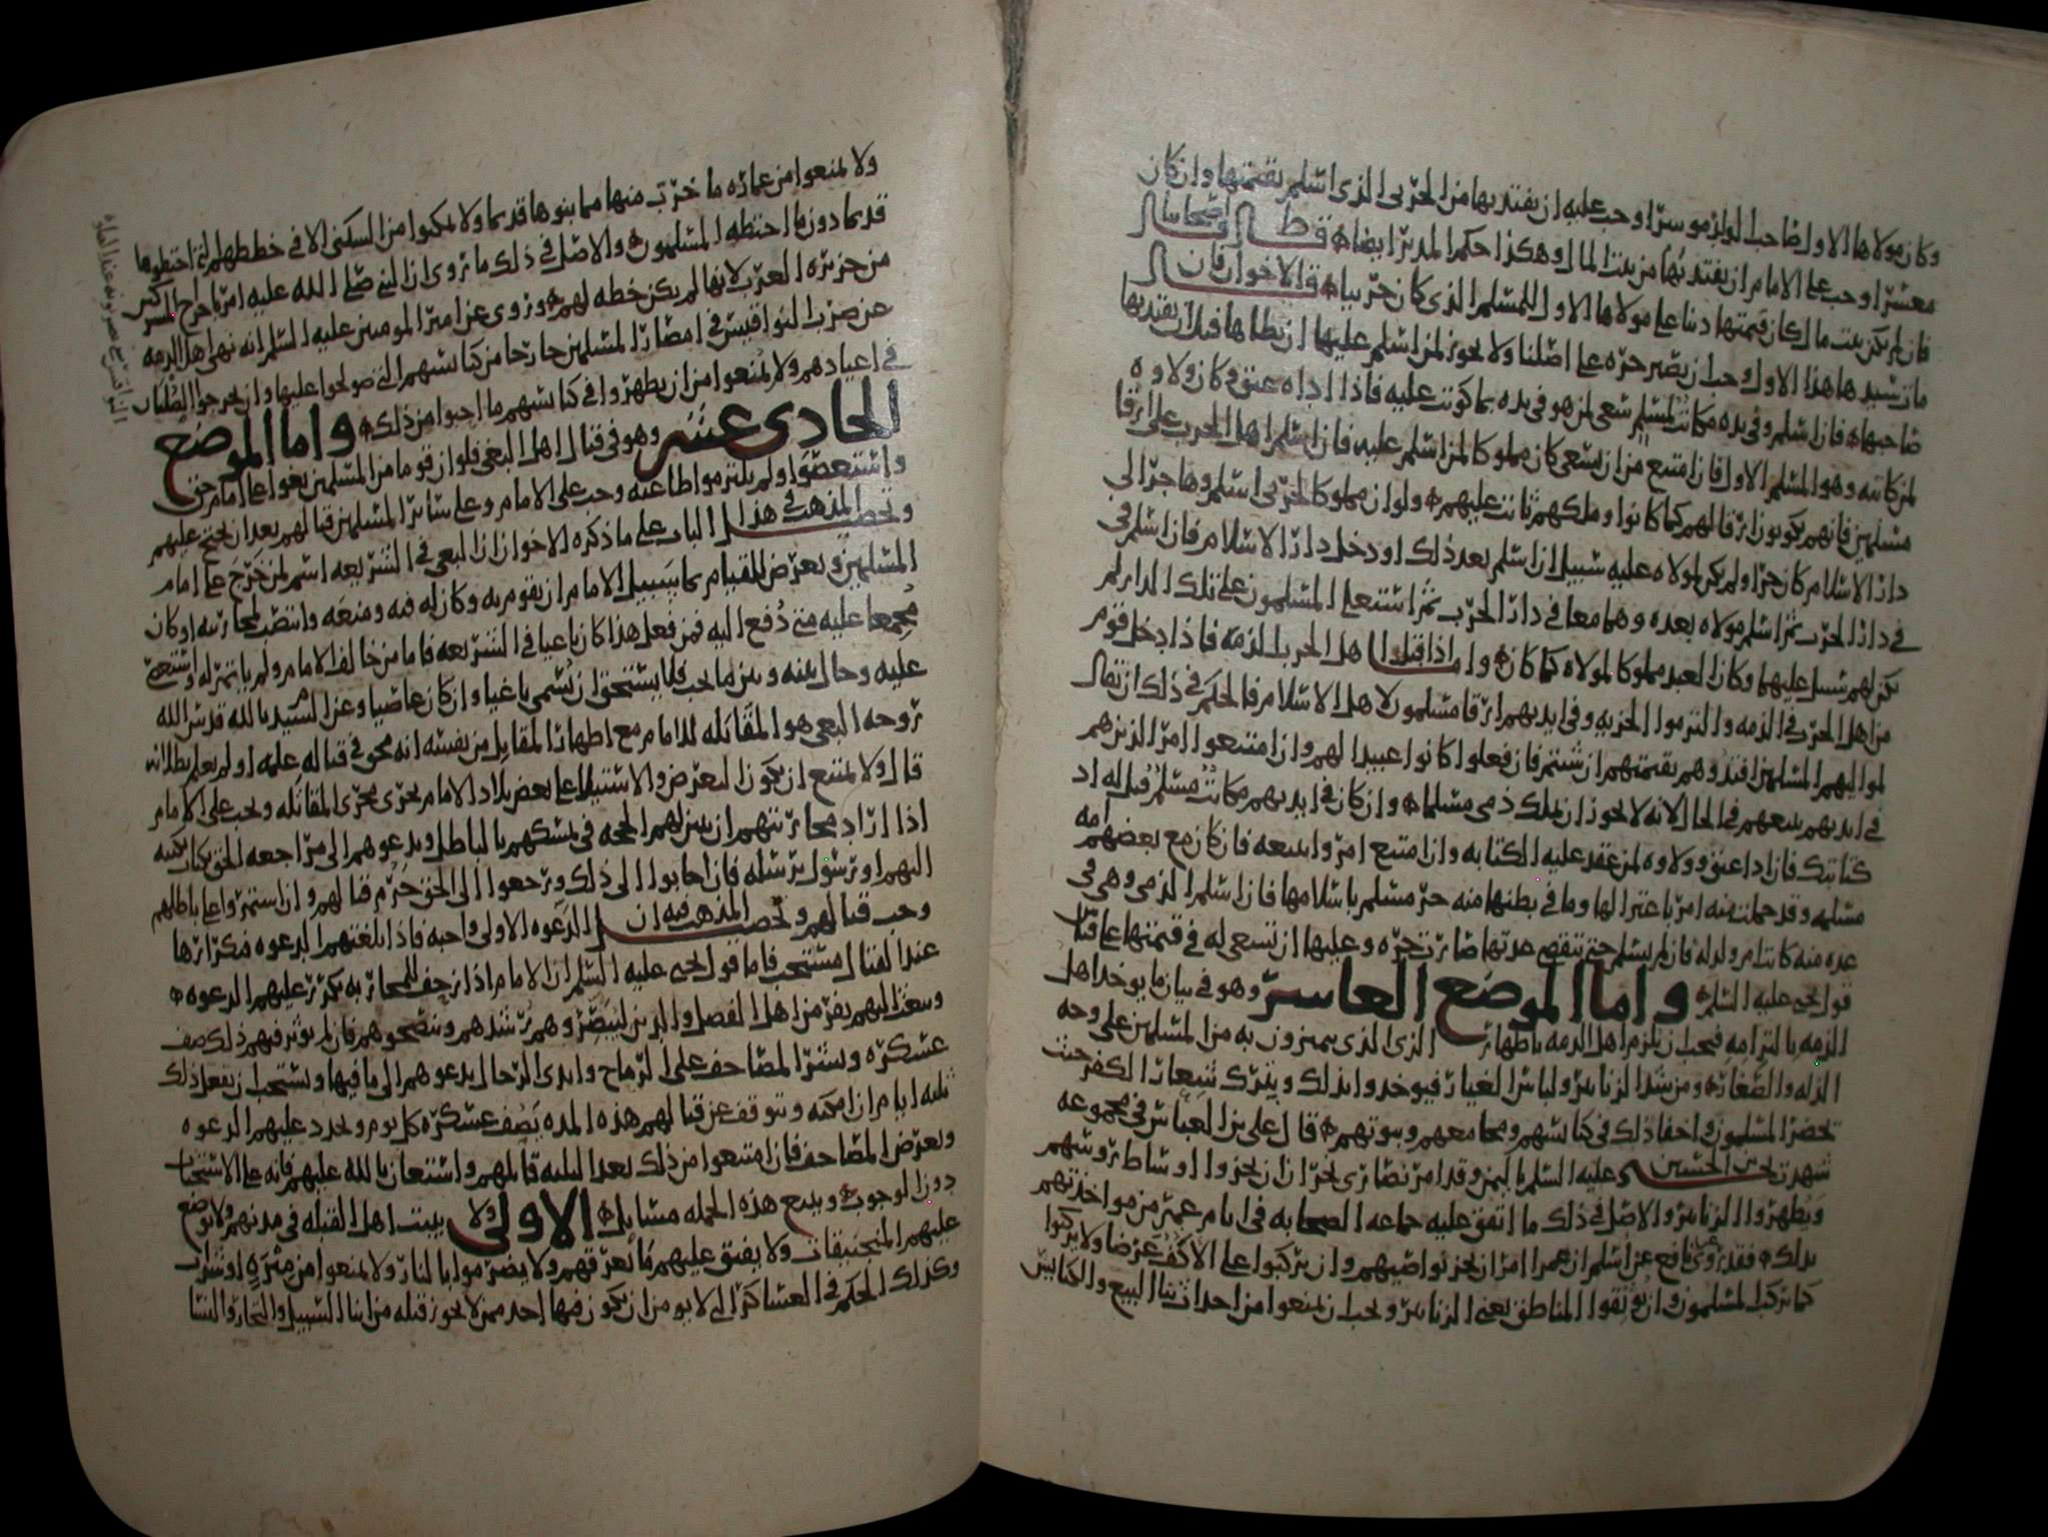 وكان مولاها الاول صاحب الولا موسرا وجب عليه ان يفتديها من الحربي الذي اسلم بقيمتها وان كان
معسرا وجب على الامام ان يفتديها من بيت المال وهكذا حكم المدبر ايضا قال اصحابنا
فان لم يكن بيت مال كان قيمتها دينا على مولاها الاول للمسلم الذي كان حربيا قال الاخوان فان
مات سيدها هذا الاول وجب ان تصير حره على اصلنا ولا يجوز لمن اسلم عليها ان يطاها قبل ان يفتديها
صاحبها فان اسلم وفي يده مكاتب لمسلم سعى لمن هو في يده بما كوتب عليه فاذا اداه عتق وكان ولاوه
لمن كاتبه وهو المسلم الاول فان امتنع من ان يسعى كان مملوكا لمن اسلم عليه فان اسلم اهل الحرب على ارقا
مسلمين فانهم يكونون ارقا لهم كما كانوا وملكهم ثابت عليهم ولو ان مملوكا لحربي اسلم وهاجر الى
دار الاسلام كان حرا ولم يكن لمولاه عليه سبيل ان اسلم بعد ذلك او دخل دار الاسلام فان اسلم في
في دار الحرب ثم اسلم مولاه بعده وهما معا في دار الحرب ثم استعلى المسلمون على تلك الدار لم
يكن لهم سبيل عليهما وكان العبد مملوكا لمولاه كما كان واما اذا قبل اهل الحرب الذمه فاذا دخل قوم
من اهل الحرب في الذمه والتزموا الجزيه وفي ايديهم ارقا مسلمون لاهل الاسلام فالحكم في ذلك ان يقال
لمواليهم المسلمين افتدوهم بقيمتهم ان شئتم فان فعلوا كانوا عبيدا لهم وان امتنعوا امر الذين هم
في ايديهم ببيعهم في الحال لانه لا يجوز ان يملك ذمي مسلما وان كان في ايديهم مكاتب مسلم قيل له اد
كتابتك فان ادا عتق وولاوه لمن عقد عليه الكتابه وان امتنع امروا ببيعه فان كان مع بعضهم امه
مسلمه وقد حملت منه امر باعتزالها وما في بطنها منه حر مسلم باسلامها فان اسلم الذمي وهي في
عده منه كانت ام ولد له فان لم يسلم حتى تنقضي عدتها صارت حره وعليها ان تسعى له في قيمتها على قياس
قول يحيى عليه السلم واما الموضع العاشر وهو في بيان ما يوخذ اهل
الذمه بالتزامه فيجب ان يلزم اهل الذمه باظهار الزي الذي يميزون به من المسلمين على وجه
الذله والصغار ومن شد الزنانير ولباس الغيار فيوخذوا بذلك وبترك شعار الكفر حيث
يحضر المسلمون واخفا ذلك في كنايسهم ومجامعهم وبيوتهم قال علي بن العباس في مجموعه
شهدت يحيى بن الحسين عليه السلم باليمن وقد امر نصارى نجران ان يجزوا اوساط روسهم
ويظهروا الزنانير والاصل في ذلك ما اتفق عليه جماعه الصحابه في ايام عمر من مواخذتهم
بذلك فقد روى نافع عن اسلم ان عمر امر ان يجز نواصيهم وان يركبوا على الاكف عرضا ولا يركبوا
كما يركب المسلمون وان يوثقوا المناطق يعني الزنانير ويجب ان يمنعوا من احداث بنا البيع والكنايس
ولا يمنعوا من عماره ما خرب منها مما بنوها قديما ولا يمكنوا من السكنى الا في خططهم التي اختطوها
قديما دون ما اختطه المسلمون والاصل في ذلك ما روي ان النبي صلى الله عليه امر باخراج المشركين
من جزيره العرب لانها لم يكن خطه لهم وروي عن امير المومنين عليه السلم انه نهى اهل الذمه
عن ضرب النواقيس في امصار المسلمين خارجا من كنايسهم التي صولحوا عليها وان يخرجوا الصلبان
في اعيادهم ولا يمنعوا من ان يظهروا في كنايسهم ما احبوا من ذلك واما الموضع
الحادي عشر وهو في قتال اهل البغي فلو ان قوما من المسلمين بغوا على امام حق
واستعصوا ولم يلتزموا طاعته وجب على الامام وعلى سائر المسلمين قتالهم بعد ان يحتج عليهم
وتحصيل المذهب في هذا الباب على ما ذكره الاخوان ان البغي في الشريعه اسم لمن خرج على امام
المسلمين وتعرض للقيام بما سبيل الامام ان يقوم به وكان له فئه ومنعه وانتصب لمحاربته او كان
مجمعا عليه متى دفع اليه فمن فعل هذا كان باغيا في الشريعه فاما من خالف الامام ولم ياتمر له واستعصى
عليه وحال بينه وبين ما يجب فلا يستحق ان يسمى باغيا وان كان عاصيا وعن السيد بالله قدس الله
روحه البغي هو المقاتله للامام مع اظهار المقاتل من نفسه انه محق في قتاله علمه او لم يعلم بطلانه
قال ولا يمتنع ان يكون التعرض والاستيلا على بعض بلاد الامام يجري مجرى المقاتله ويجب على الامام
اذا اراد محاربتهم ان يبين لهم الحجه في تمسكهم بالباطل ويدعوهم الى مراجعه الحق بكتاب يكتبه
اليهم او رسول يرسله فان اجابوا الى ذلك ورجعوا الى الحق حرم قتالهم وان استمروا على باطلهم
وجب قتالهم وتحصيل المذهب فيه ان الدعوه الاولى واجبه فاذا بلغتهم الدعوه فتكرارها
عند القتال مستحب فاما قول يحيى عليه السلم ان الامام اذا زحف للمحاربه يكرر عليهم الدعوه
وينفذ اليهم بنفر من اهل الفضل والدين ليبصروهم رشدهم وينصحوهم فان لم يوثر فيهم ذلك صف
عسكره ونشر المصاحف على الرماح وايدي الرجال يدعوهم الى ما فيها ويستحب ان يفعل ذلك
ثلثه ايام ان امكنه ويتوقف عن قتالهم هذه المده يصف عسكره كل يوم ويجدد عليهم الدعوه
ويعرض المصاحف فان امتنعوا من ذلك بعد الثلثه قاتلهم واستعان بالله عليهم فانه على الاستحباب
دون الوجوب ويتبع هذه الجمله مسايل الاولى ولا يبيت اهل القبله في مدنهم ولا توضع
عليهم المنجنيقات ولا يفتق عليهم ما يغرقهم ولا يضرموا بالنار ولا يمنعوا من ميره او شراب
وكذلك الحكم في العساكر التي لا يومن ان يكون فيها احد ممن لا يجوز قتله من ابنا السبيل والتجار والنسا